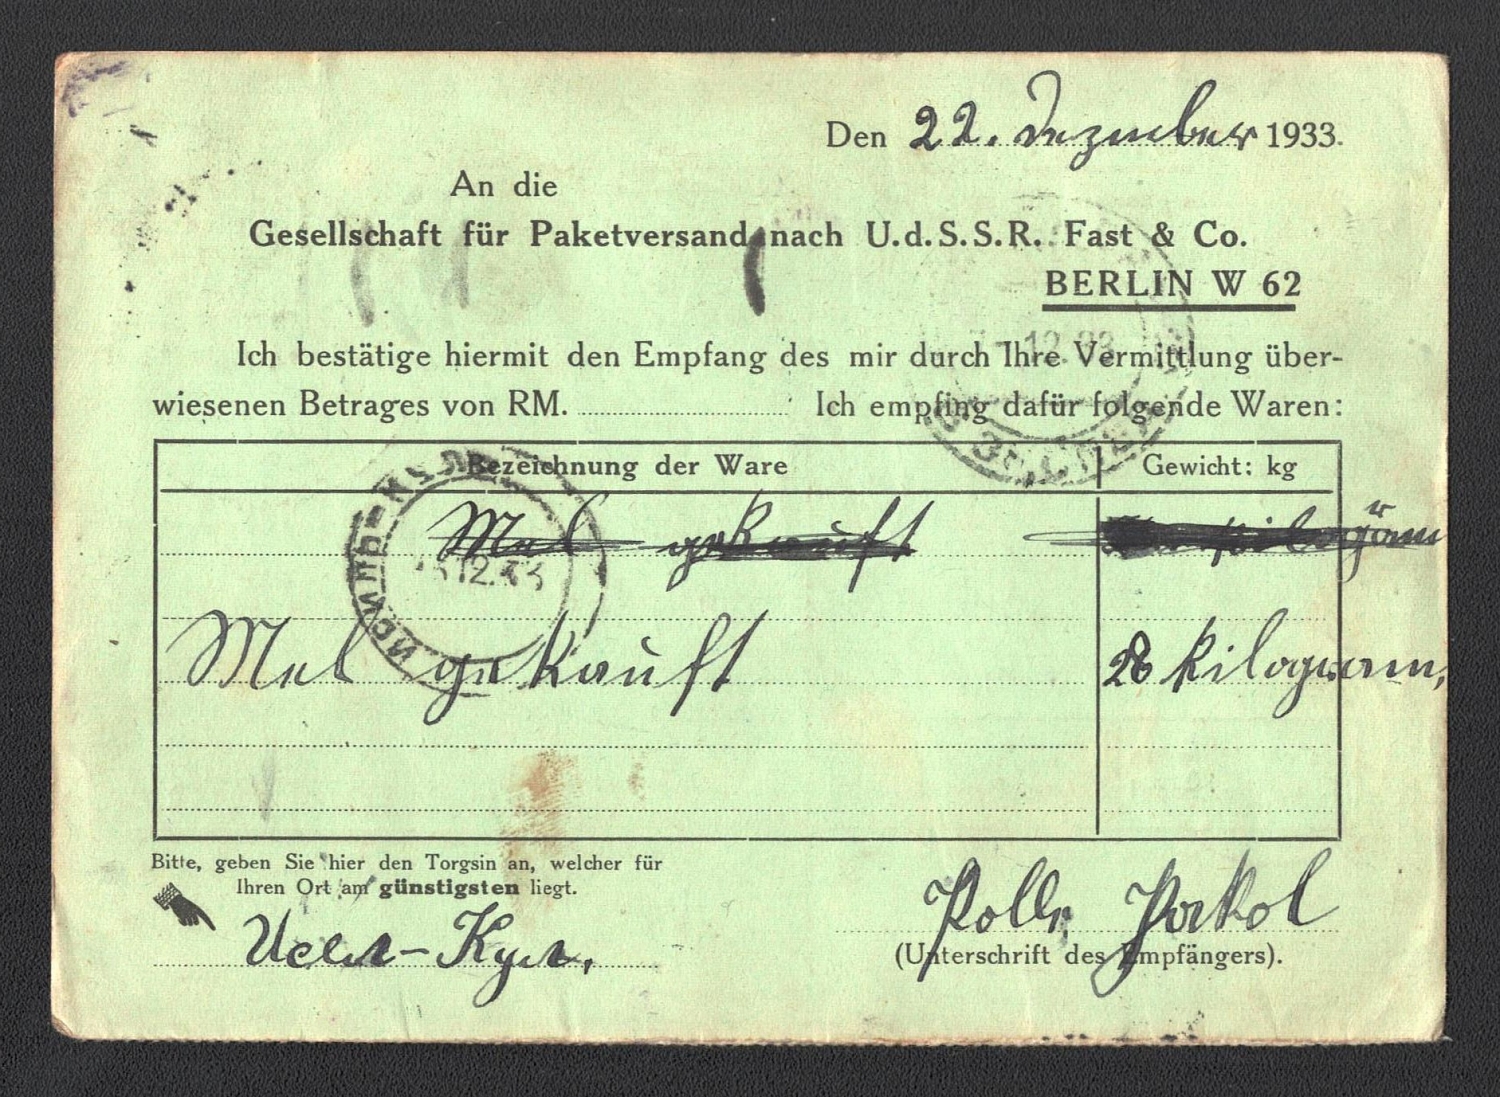 Den 22. Dezember 1933.
An die
Gesellschaft für Paketversand nach U.d.S.S.R. Fast & Co.
BERLIN W 62
Ich bestätige hiermit den Empfang des mir durch Ihre Vermittlung über-
wiesenen Betrages von RM. Ich empfing dafür folgende Waren:
Bezeichnung der Ware Gewicht: kg
Mel gekauft
Mel gekauft 28 kilogram,
Bitte, geben Sie hier den Torgsin an, welcher für
Ihren Ort am günstigsten liegt.
(Unterschrift des Empfängers).